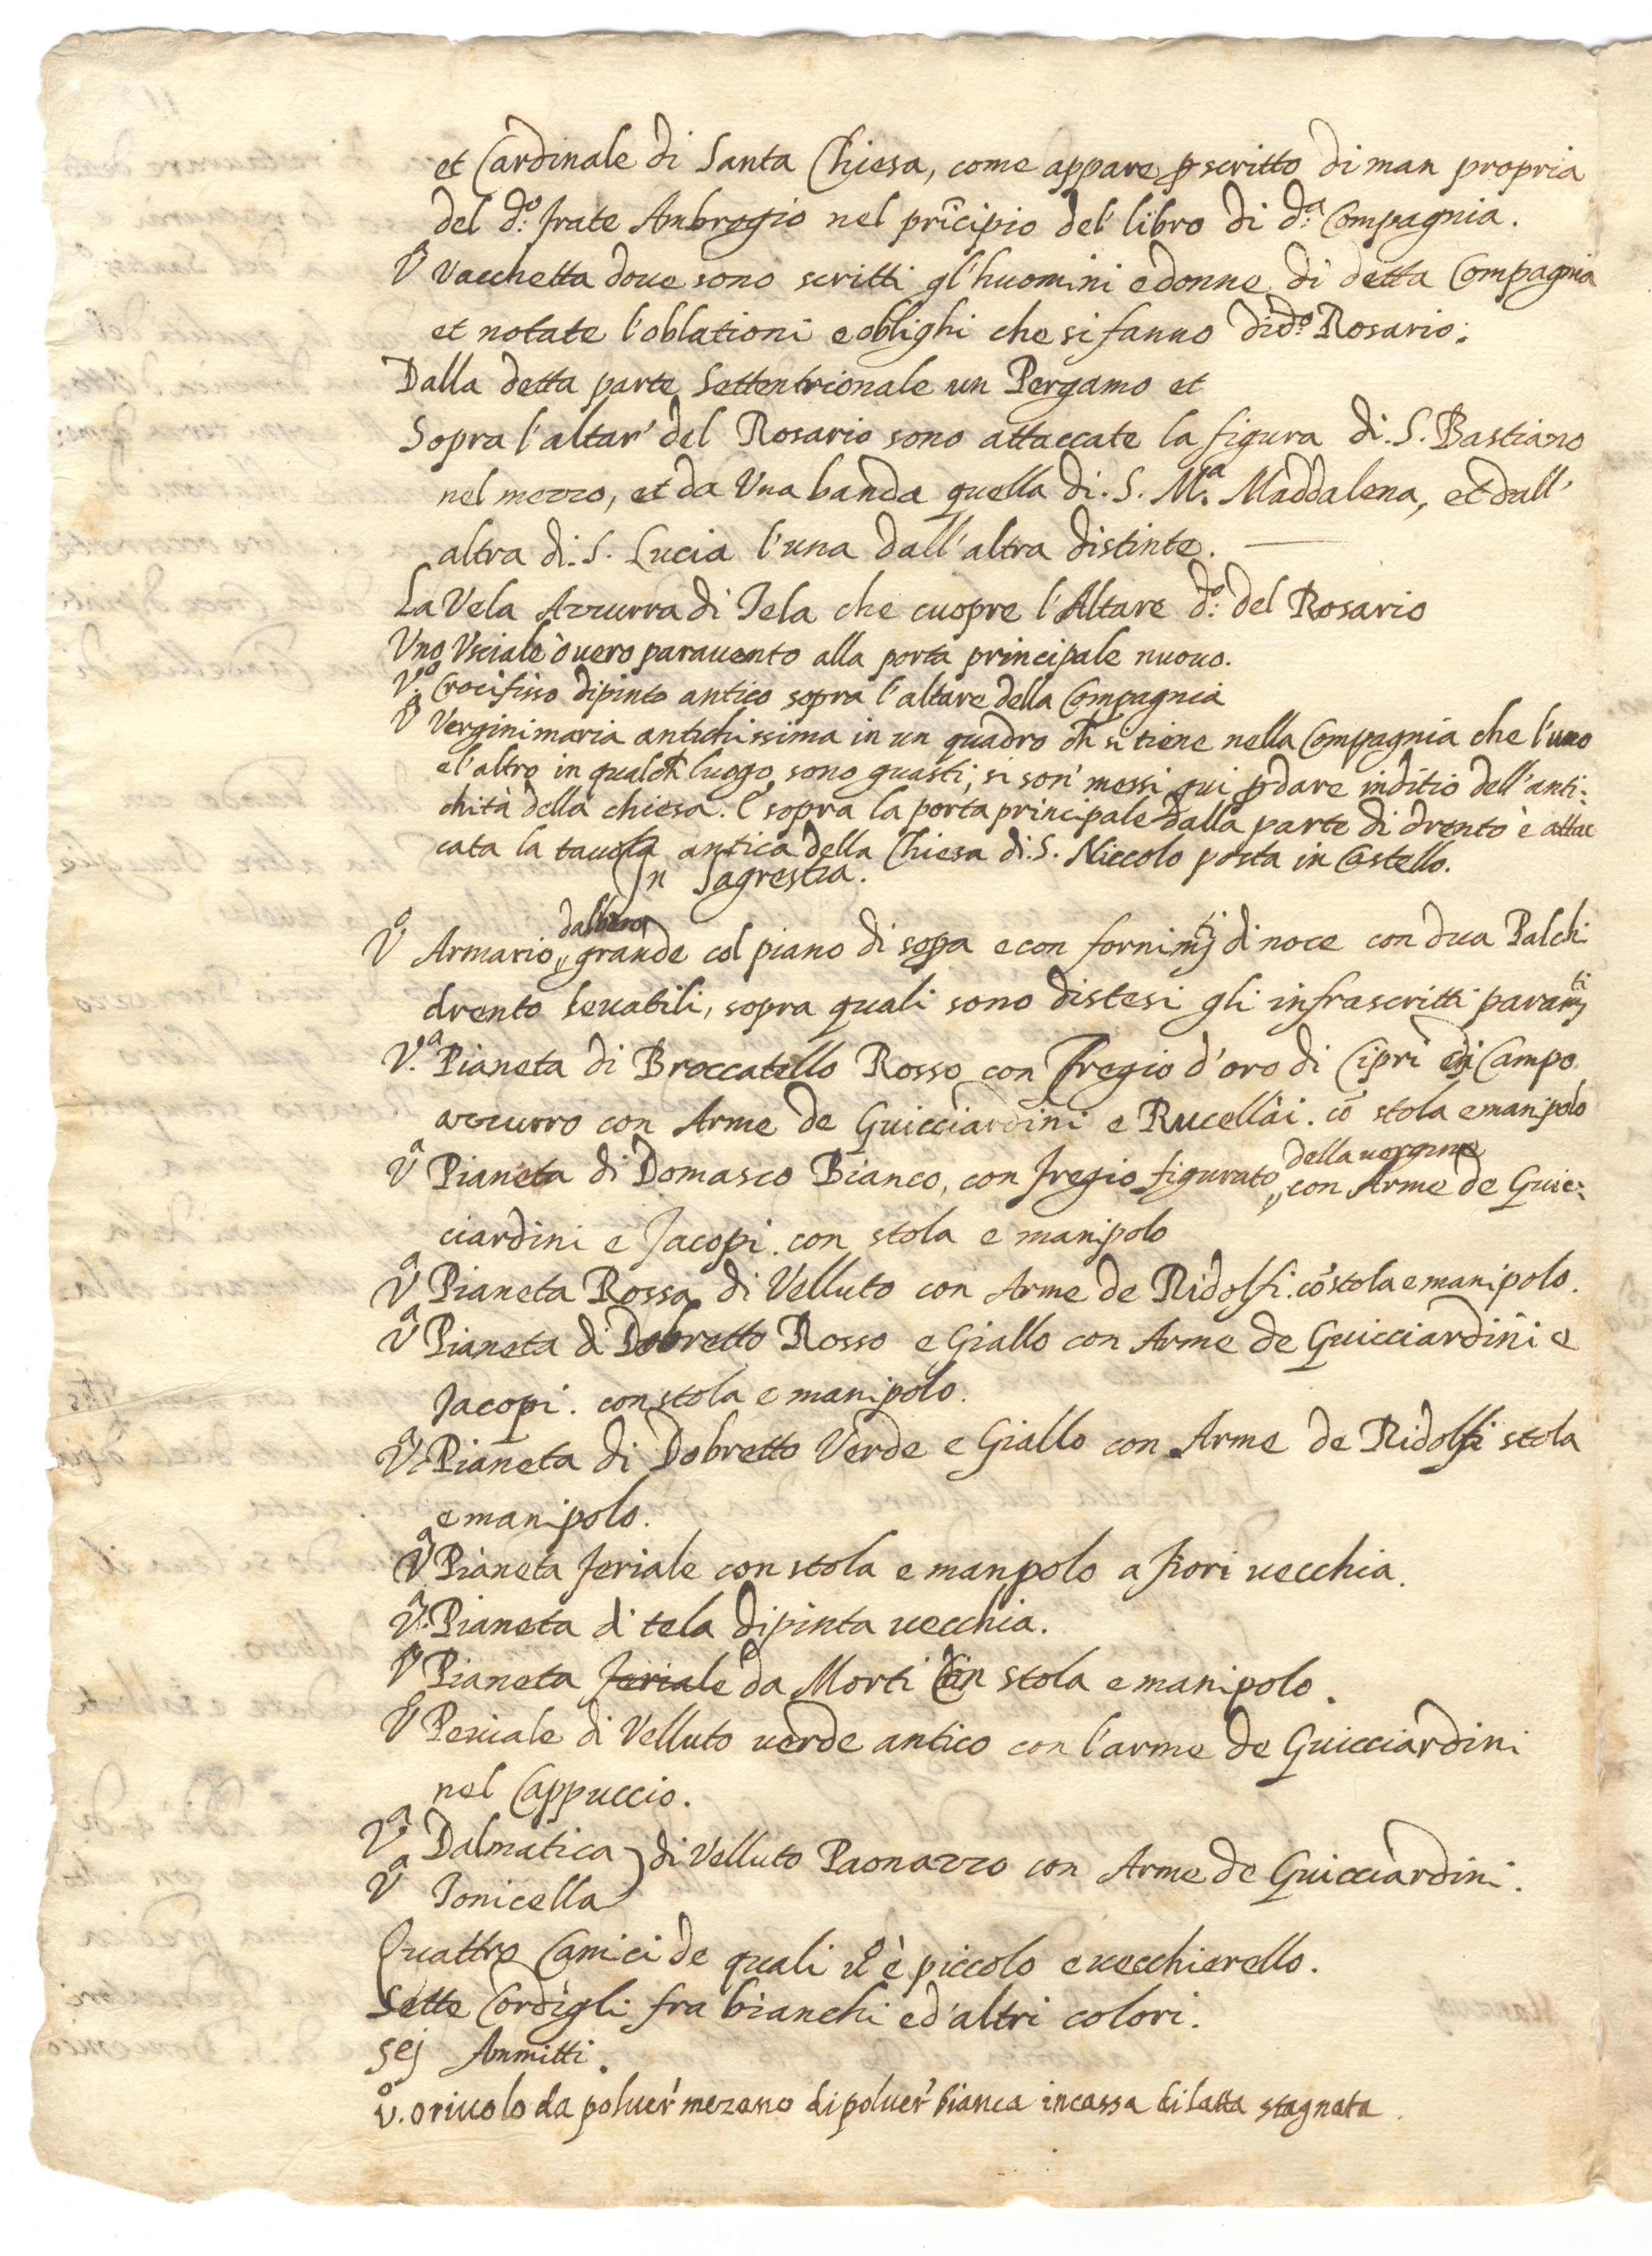 et Cardinale di Santa Chiesa, come appare ꝑ scritto di man propria
del d.º frate Ambrogio nel prīcipio del libro di d.ª Compagnia.
Vª Vacchetta doue sono scritti gl'huomini e donne di detta Compagnia
et notate l'oblationi e oblighi che si fanno di d.º Rosario.
Dalla detta parte Settentrionale un Pergamo et
Sopra l'altar' del Rosario sono attaccate la figura di. S. Bastiano
nel mezzo, et da Vna banda quella di. S. M.ª Maddalena, et dall'
altra di. S. Lucia l'una dall'altra distinte.
La Vela Azzurra di Tela che cuopre l'Altare d.º del Rosario
Uno Vsciale ò uero parauento alla porta principale nuouo.
V.º Crocifisso dipinto antico sopra l'altare della Compagnia
Vª Verginimaria antichissima in un quadro ch̄ si tiene nella Compagnia che l'uno
e l'altro in qualch̄ luogo sono guasti, si son' messi qui ꝑ dare inditio dell'anti:
chità della chiesa. E sopra la porta principale dalla parte di drento è attac
cata la tauola antica della Chiesa di. S. Niccolo posta in Castello.
In Sagrestia.
Vº Armario,, dalbero grande col piano di sopa e con fornimtj di noce con dua Palchi
drento leuatili, sopra quali sono distesi gli infrascritti paramtj
V.ª Pianeta di Broccatello Rosso con Fregio d'oro di Cipri di Campo
azzurro con Arme de Guicciardini e Rucellai. cō stola e manipolo
Vª Pianeta di Domasco Bianco, con fregio figurato,, della uergine con Arme de Guic:
ciardini e Jacopi. con stola e manipolo
Vª Pianeta Rossa di Velluto con Arme de Ridolfi. cō stola e manipolo.
Vª Pianeta di Dobretto Rosso e Giallo con Arme de Guicciardini e
Jacopi. con stola e manipolo.
V.ª Pianeta di Dobretto Verde e Giallo con Arme de Ridolfi stola
e manipolo.
Vª Pianeta feriale con stola e manpolo a fiori uecchia.
V.ª Pianeta di tela dipinta uecchia.
Vª Pianeta feriale da Morti con stola e manipolo.
Vº Peuiale di Velluto uerde antico con l'arme de Guicciardini
nel Cappuccio.
V.ª Dalmatica } di Velluto Paonazzo con Arme de Guicciardini.
Vª Tonicella
Quattro Camici de quali uº è piccolo e uecchierello.
Sette Cordigli fra bianchi ed'altri colori.
sej Ammitti.
vº. oriuolo da poluer' mezano di poluer' bianca in cassa di latta stagnata.